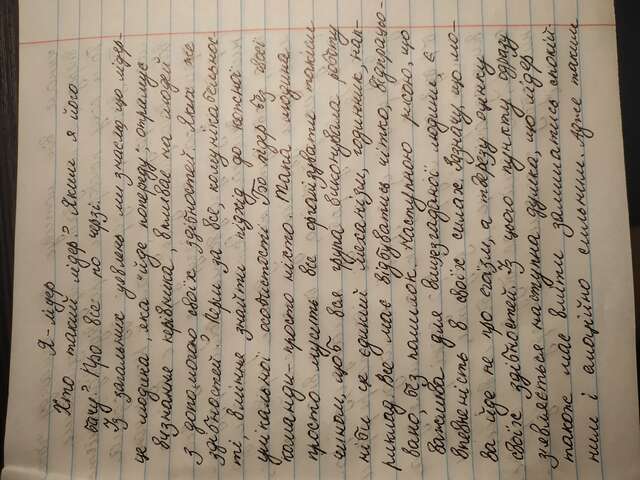 Я - лідер
Хто такий лідер? Яким я його
бачу? Про все по черзі.
Із загальних уявлень ми знаємо, що лідер-
це людина, яка "йде попереду", отримує
визнання керівника, впливає на людей
з допомогою своїх здібностей. Яких же
здібностей? Перш за все, комунікабельнос-
ті, вміння знайти підхід до кожної
унікальної особистості. Бо лідер без своєї
команди - просто ніхто. Така людина
просто мусить все організувати таким
чином, щоб вся група виконувала роботу
ніби це єдиний механізм, годинник, нап-
риклад. Все має відбуватись чітко, відпрацьо-
вано, без помилок. Наступною рисою, що
важлива для вищезгаданої людини, є
впевненість в своїх силах. Відзначу, що мо-
ва йде не про егоїзм, а тверезу оцінку
своїх здібностей. Із цього пункту одразу
з'являється наступна думка, що лідер
також має вміти залишатись спокій-
ним і емоційно сильним. Адже таким